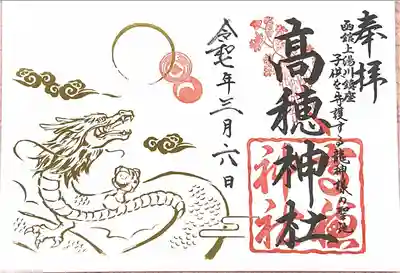 奉拝
函館上湯川鎮座
子供を守護する龍神様の聖地
高穂神社
令和七年三月六日